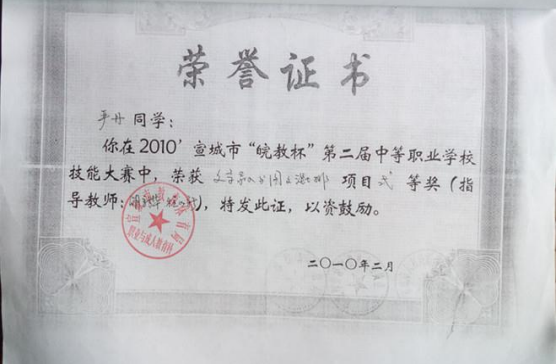 荣誉证书
严丹 同学：
你在2010'宣城市“皖教杯”第二届中等职业学校
技能大赛中，荣获 项目 贰 等奖（指
导教师： ），特发此证，以资鼓励。
职业与成人教育科
二〇一〇年二月